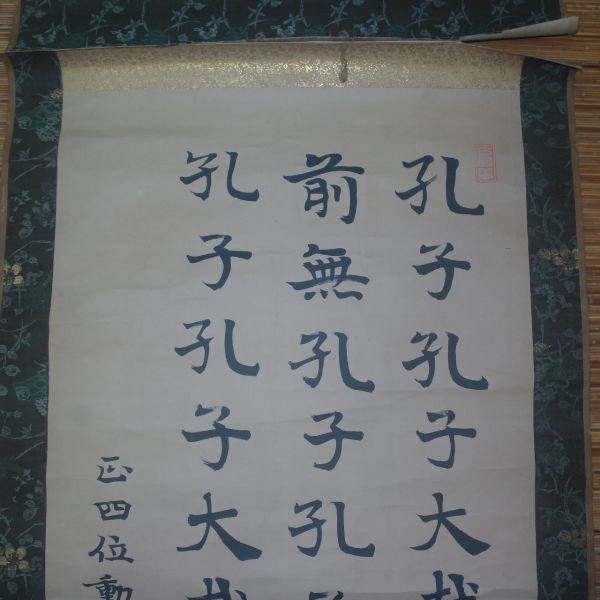 孔子孔子大哉
前無孔子孔子
孔子孔子大哉
正四位勲